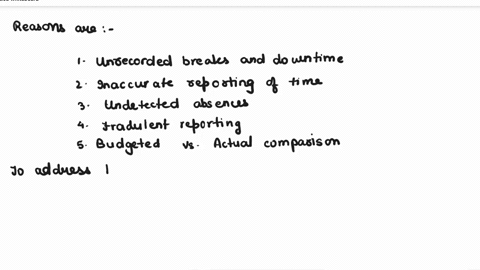 Reasons are :-
1. Unrecorded breaks and downtime
2. Inaccurate reporting of time
3. Undetected absences
4. Fradulent reporting
5. Budgeted vs. Actual comparison
To address